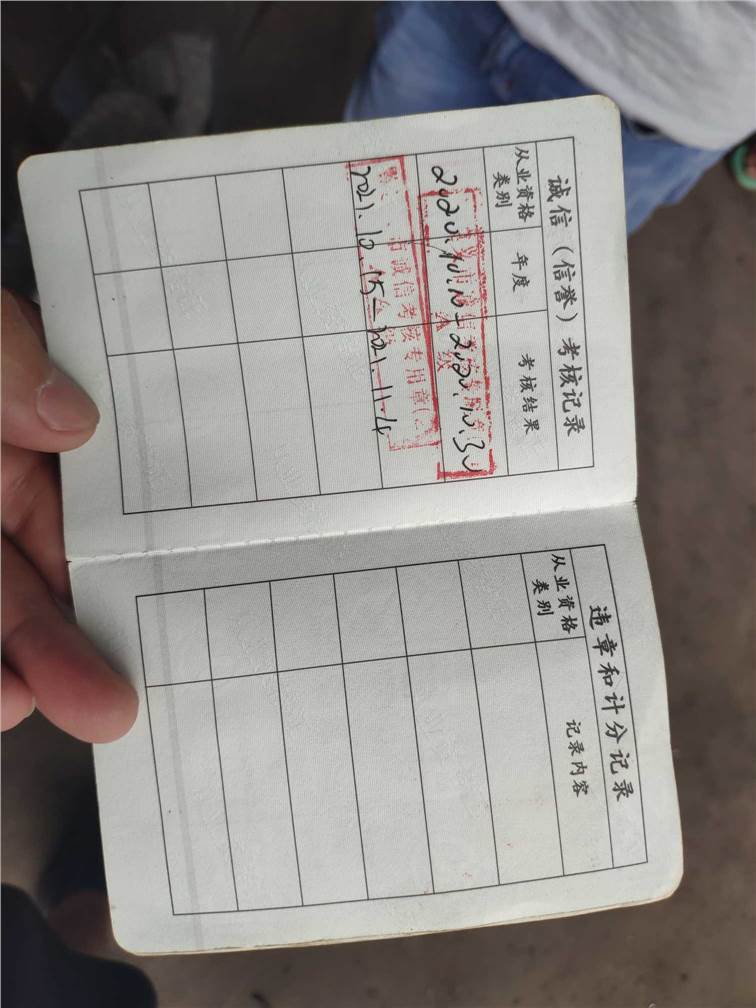 诚信（信誉）考核记录
从业资格类别 年度 考核结果
2021.10.15-2021.11.4
诚信考核专用章
违章和计分记录
从业资格类别 记录内容